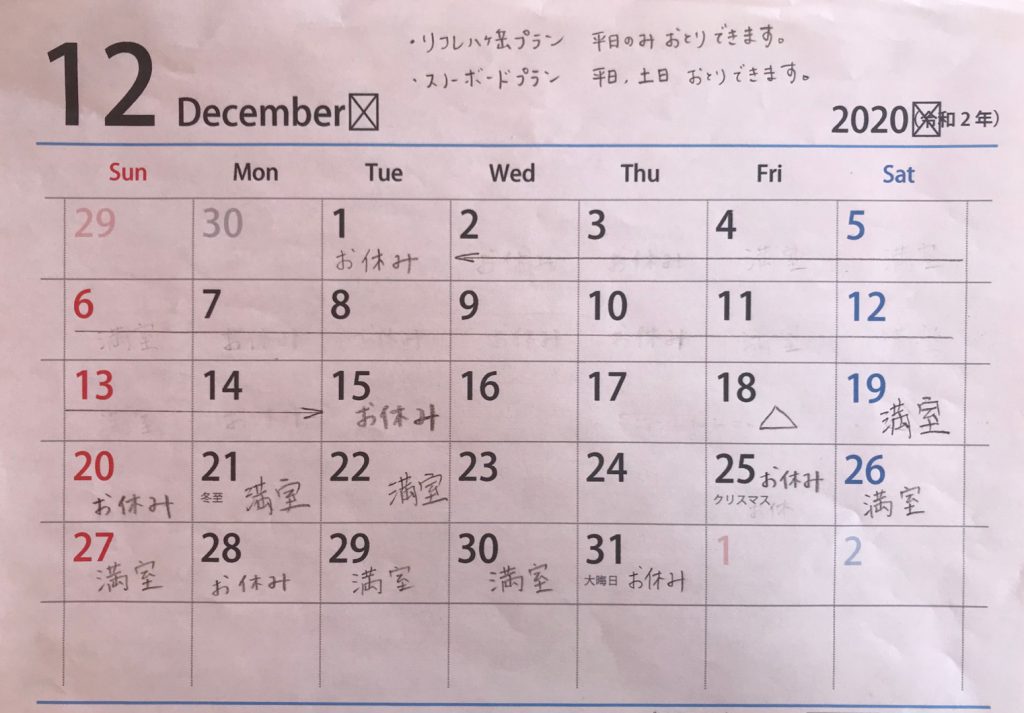 ・リフレ八ヶ岳プラン 平日のみ おとりできます。
・スノーボードプラン 平日,土日 おとりできます。
12 December 2020 (令和2年)
Sun Mon Tue Wed Thu Fri Sat
29 30 1 2 3 4 5
お休み
6 7 8 9 10 11 12
13 14 15 16 17 18 19
お休み △ 満室
20 21 22 23 24 25 26
お休み 冬至 満室 満室 クリスマス お休み 満室
27 28 29 30 31 1 2
満室 お休み 満室 満室 大晦日 お休み